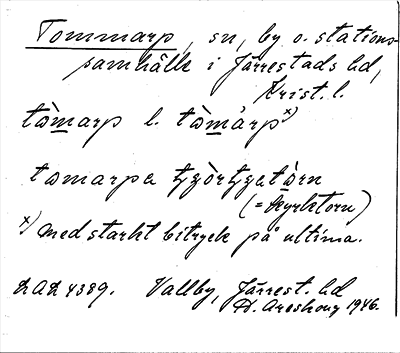 Tommarp, sn, by o. stations-
samhälle i Järrestads hd,
Krist. l.
tòmarp l. tòmàrp x)
tomarpa
(= Kyrktorn)
x) med starkt bitryck på ultima.
4389. Vallby, Järrest. hd
1946.